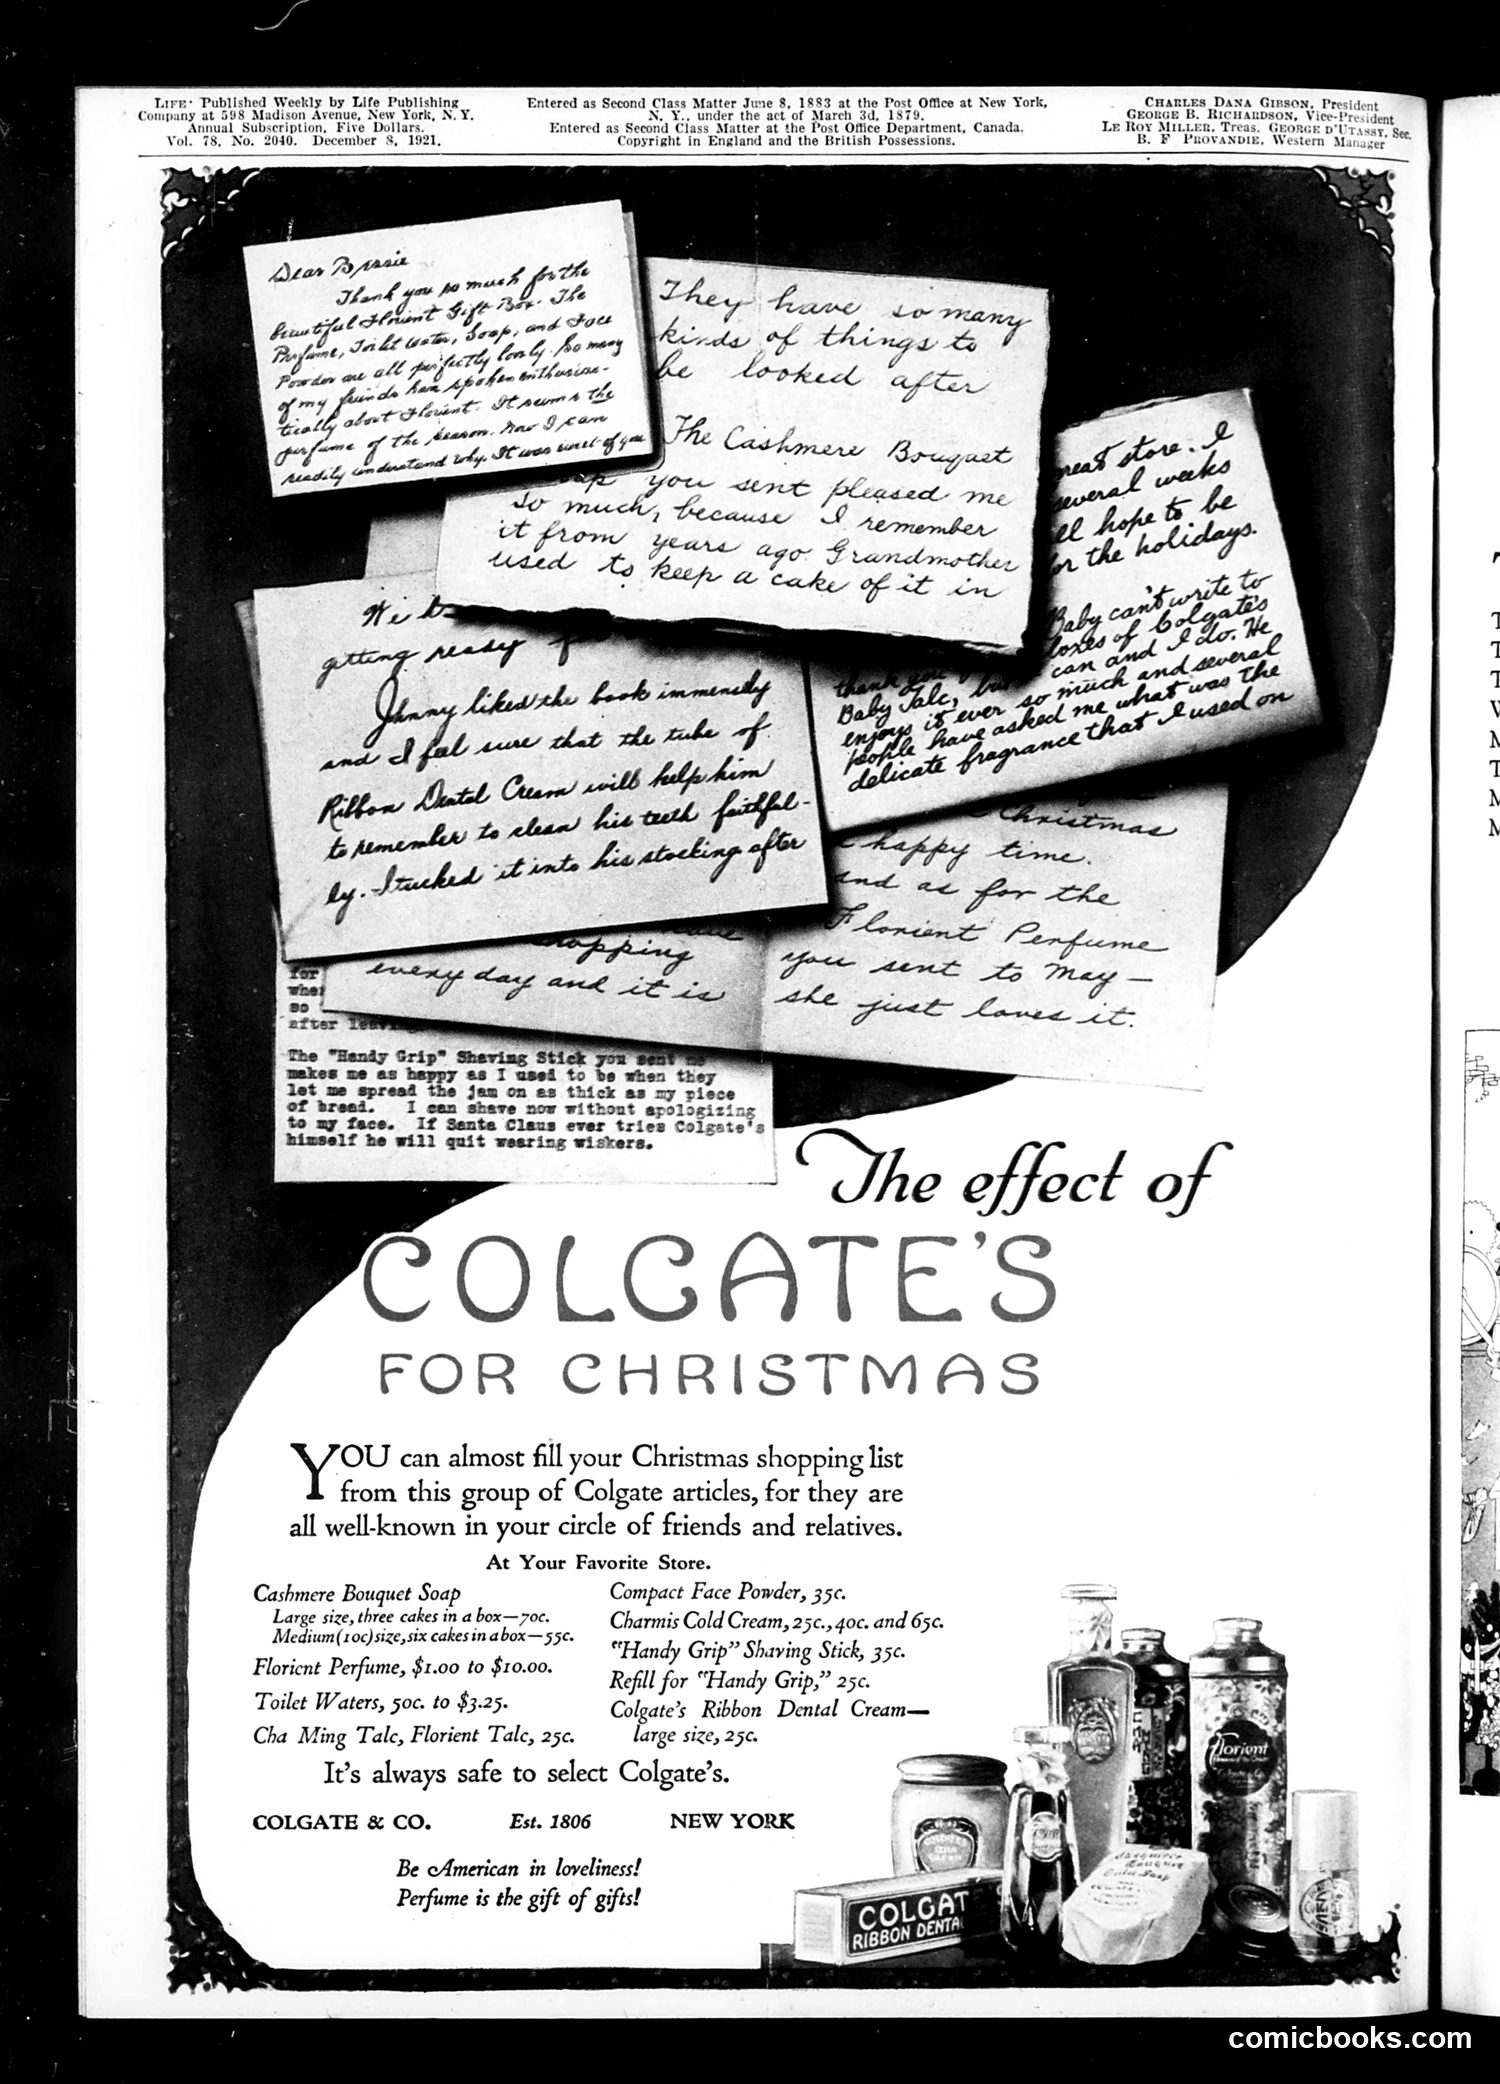 LIFE· Published Weekly by Life Publishing
Company at 598 Madison Avenue, New York, N. Y.
Annual Subscription, Five Dollars.
Vol. 78, No. 2040. December 8, 1921.
Entered as Second Class Matter June 8, 1883 at the Post Office at New York,
N. Y., under the act of March 3d, 1879.
Entered as Second Class Matter at the Post Office Department, Canada.
Copyright in England and the British Possessions.
CHARLES DANA GIBSON, President
GEORGE B. RICHARDSON, Vice-President
LE ROY MILLER, Treas. GEORGE D'UTASSY, Sec.
B. F PROVANDIE, Western Manager
Dear Bessie
Thank you so much for the
beautiful Florient Gift Box. The
Perfume, Toilet Water, Soap, and Face
Powder are all perfectly lovely. So many
of my friends have spoken enthusias-
tically about Florient. It seems the
perfume of the season. Now I can
readily understand why. It was sweet of you
They have so many
kinds of things to
be looked after
The Cashmere Bouquet
you sent pleased me
so much, because I remember
it from years ago. Grandmother
used to keep a cake of it in
store. I
several weeks
hope to be
for the holidays.
Baby can't write to
thank you boxes of Colgate's
Baby Talc, but can and I do. He
enjoys it ever so much and several
people have asked me what was the
delicate fragrance that I used on
getting ready
Johnny liked the book immensely
and I feel sure that the tube of
Ribbon Dental Cream will help him
to remember to clean his teeth faithful-
ly. I tucked it into his stocking after
every day and it is
Christmas
happy time.
and as for the
Florient Perfume
you sent to May—
she just loves it.
for
so
after
The "Handy Grip" Shaving Stick you sent me
makes me as happy as I used to be when they
let me spread the jam on as thick as my piece
of bread. I can shave now without apologizing
to my face. If Santa Claus ever tries Colgate's
himself he will quit wearing wiskers.
The effect of
COLGATE'S
FOR CHRISTMAS
YOU can almost fill your Christmas shopping list
from this group of Colgate articles, for they are
all well-known in your circle of friends and relatives.
At Your Favorite Store.
Cashmere Bouquet Soap
Large size, three cakes in a box—70c.
Medium (10c) size, six cakes in a box—55c.
Florient Perfume, $1.00 to $10.00.
Toilet Waters, 50c. to $3.25.
Cha Ming Talc, Florient Talc, 25c.
Compact Face Powder, 35c.
Charmis Cold Cream, 25c., 40c. and 65c.
"Handy Grip" Shaving Stick, 35c.
Refill for "Handy Grip," 25c.
Colgate's Ribbon Dental Cream—
large size, 25c.
It's always safe to select Colgate's.
COLGATE & CO. Est. 1806 NEW YORK
Be American in loveliness!
Perfume is the gift of gifts!
Florient
COLGATE'S
RIBBON DENTAL
comicbooks.com